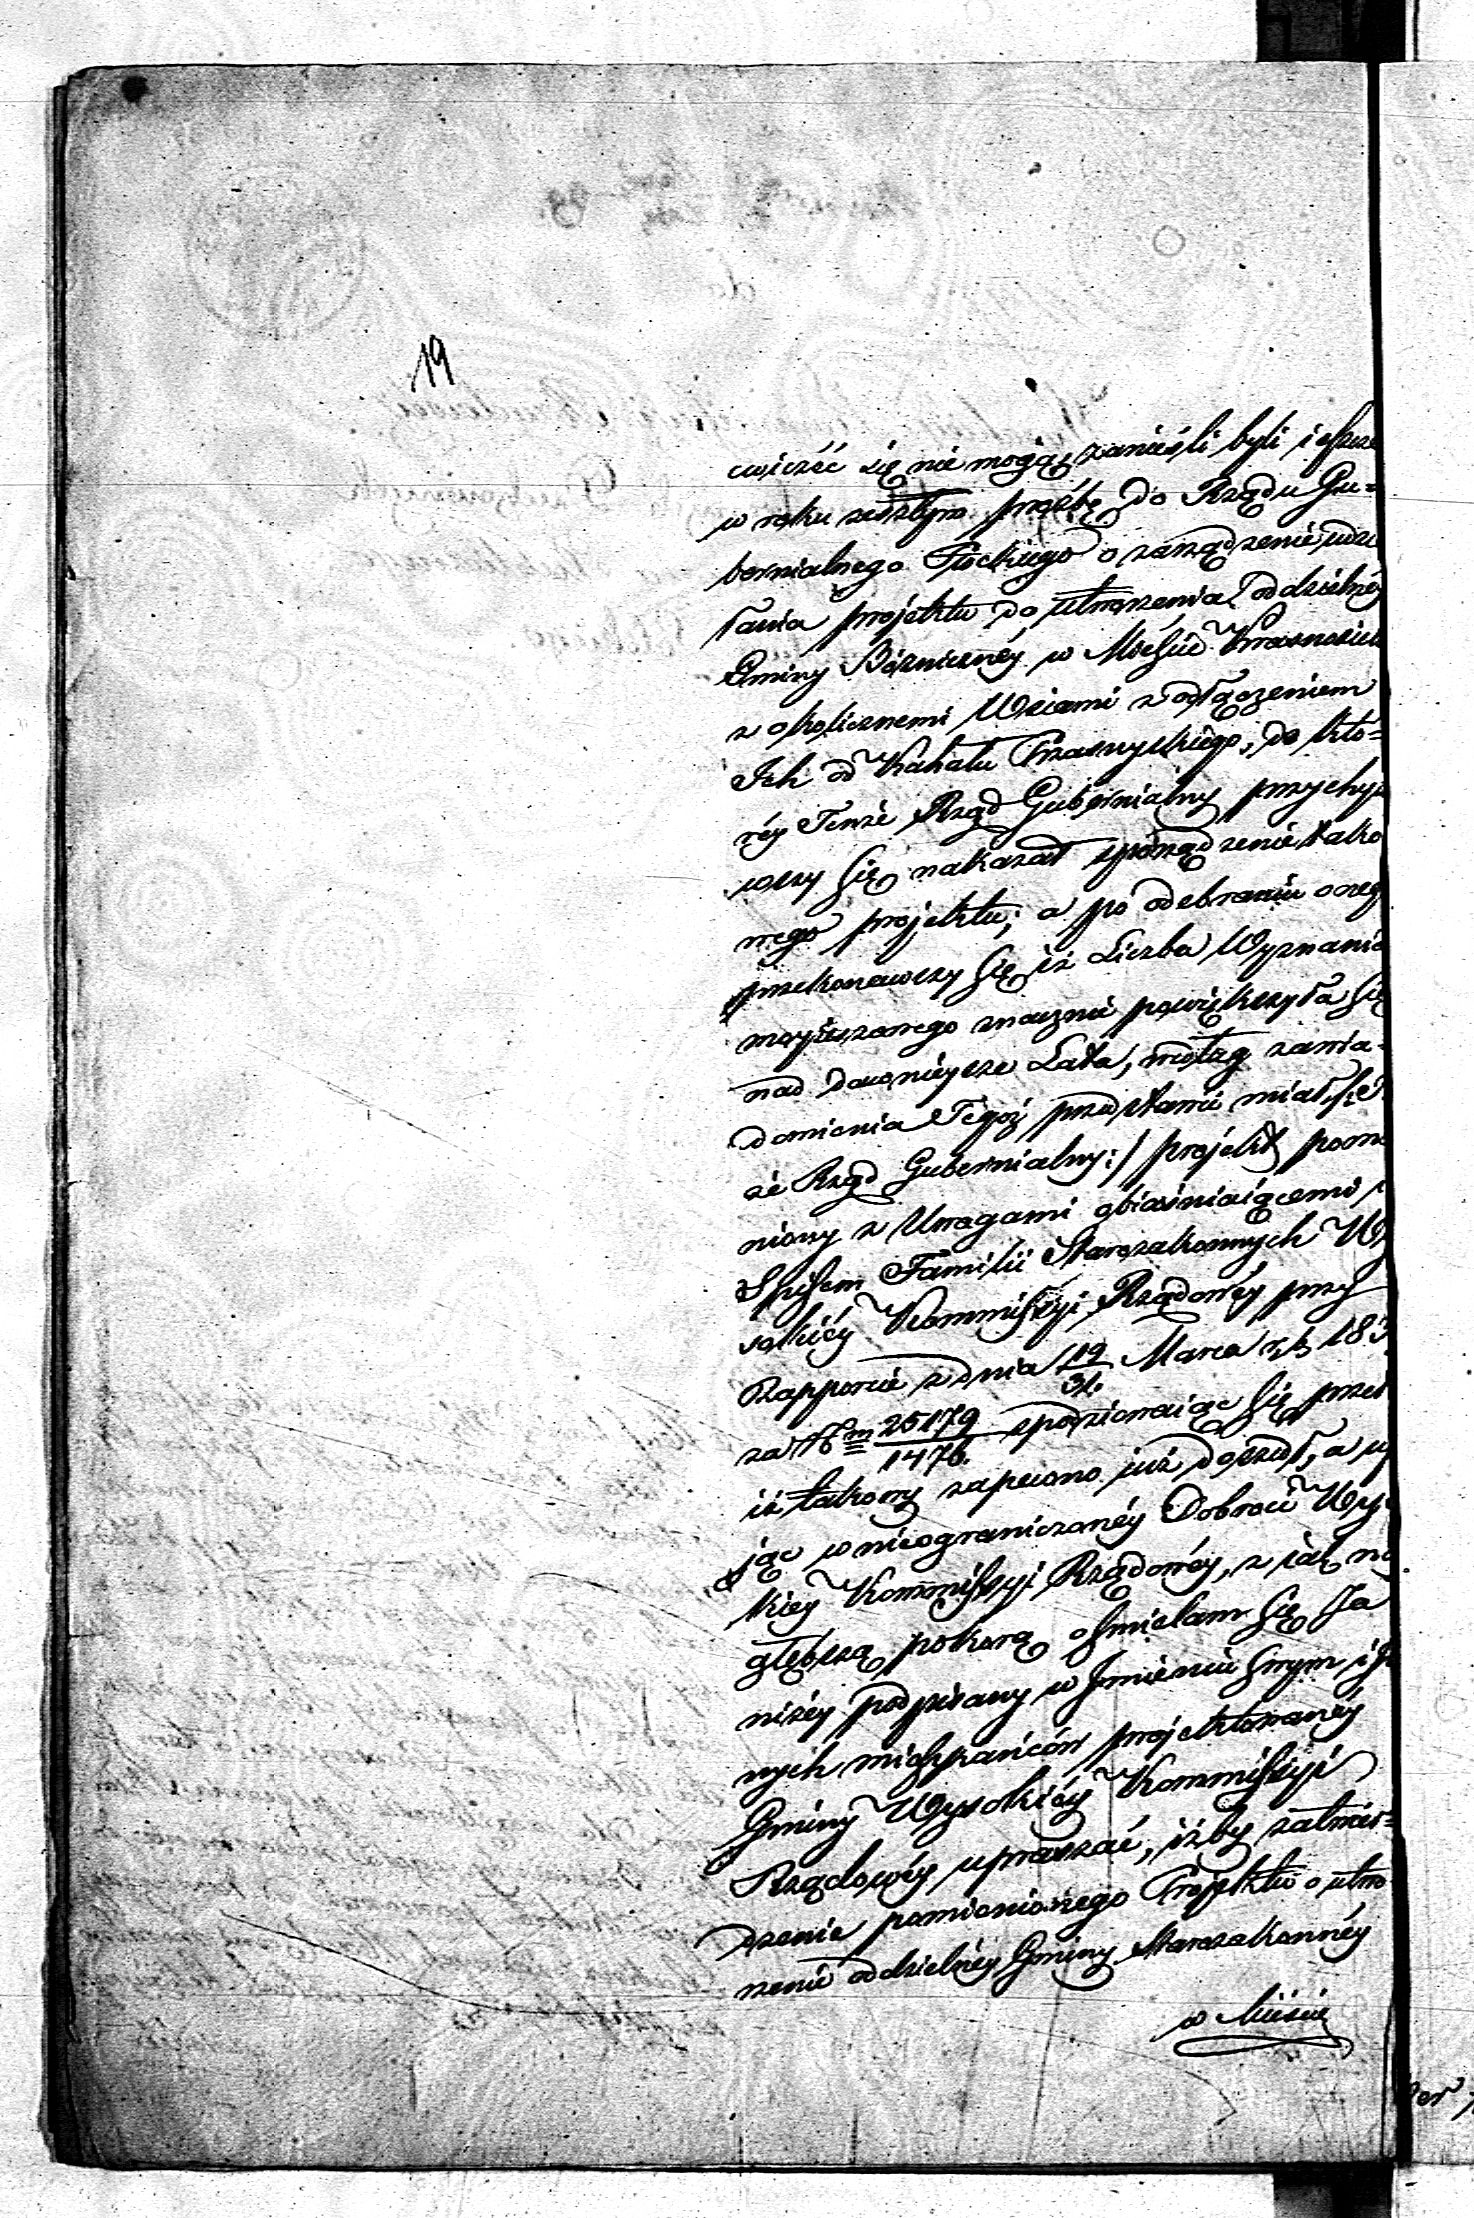 19
cwiczéć się nie mogąc, zanieśli byli ieszcze
w roku zeszłym prozbę do Rządu Gu=
bernialnego Płockiego o zarządzenie udzie
łania projektu do utworzenia oddzielnéy
Gminy Bózniczney w Mieście Krasnosielc
z okolicznemi Wsiami z odłączeniem
Ich od Kahału Przasnyskiego, do któ=
réy Tenże Rząd Gubernialny przychyli
wszy się nakazał sporządzenie tako
wego projektu; a po odebraniu onego
przekonawszy się iż Liczba Wyznania
moyżeszowego znacznie powiększyła się
nad dawnieysze Lata, według zawia=
domienia Tegoż przedstawić miał /: Ten
że Rząd Gubernialny :/ projekt pomie
niony z Uwagami obiaśniaiącemi i
Spisem Familii Starozakonnych Wy
sokiéy Kommissyi Rządowéy przy
Rapporcie z dnia 19/31. Marca r. b. 183
za N<sup>m</sup> 25179/1476. spodziewaiąc się przeto
iż takowy zapewno już doszedł, a uf
jąc w nieograniczonéy Dobroci Wyso
kiey Kommissyi Rządowéy, z iak nay
głębszą pokorą ośmielam się Ja
niżéy podpisany w Jmieniu swym i In
nych mieszkańców projektowanéy
Gminy Wysokiéy Kommissyi
Rządowéy upraszać, iżby zatwier=
dzenie pomienionego Projektu o utwo
rzenie oddzielnéy Gminy Starozakonnéy
w Mieście